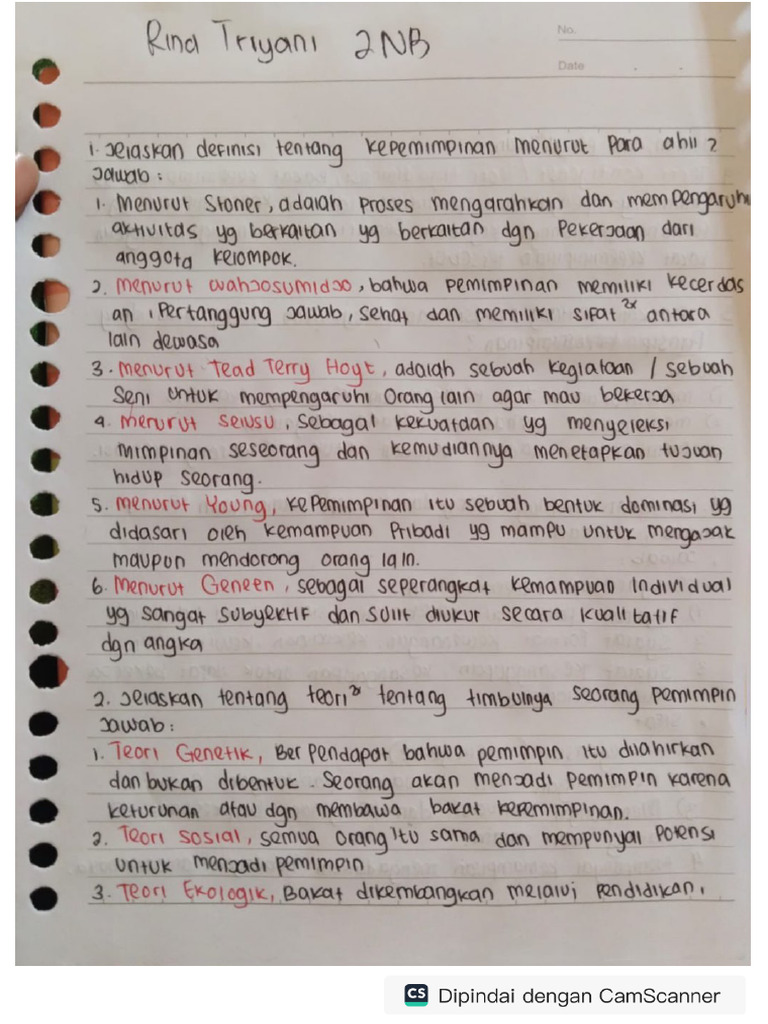 Rina Triyani 2NB
No.
Date
1. Jelaskan definisi tentang kepemimpinan menurut para ahli ?
Jawab :
1. Menurut Stoner, adalah proses mengarahkan dan mempengaruhi
aktivitas yg berkaitan yg berkaitan dgn pekerjaan dari
anggota kelompok.
2. Menurut wahjosumidjo, bahwa pemimpinan memiliki kecerdas
an, pertanggung jawab, sehat dan memiliki sifat 2x antara
lain dewasa
3. Menurut Tead Terry Hoyt, adalah sebuah kegiataan / sebuah
seni untuk mempengaruhi orang lain agar mau bekerja
4. Menurut Seiusu, sebagai kekuataan yg menyeleksi
mimpinan seseorang dan kemudiannya menetapkan tujuan
hidup seorang.
5. Menurut Young, kepemimpinan itu sebuah bentuk dominasi yg
didasari oleh kemampuan pribadi yg mampu untuk mengajak
maupun mendorong orang lain.
6. Menurut Geneen, sebagai seperangkat kemampuan individual
yg sangat subyektif dan sulit diukur secara kualitatif
dgn angka
2. Jelaskan tentang teori 2x tentang timbulnya seorang pemimpin
Jawab :
1. Teori Genetik, Berpendapat bahwa pemimpin itu dilahirkan
dan bukan dibentuk. Seorang akan menjadi pemimpin karena
keturunan atau dgn membawa bakat kepemimpinan.
2. Teori sosial, semua orang itu sama dan mempunyai potensi
untuk menjadi pemimpin
3. Teori Ekologik, Bakat dikembangkan melalui pendidikan,
CS Dipindai dengan CamScanner